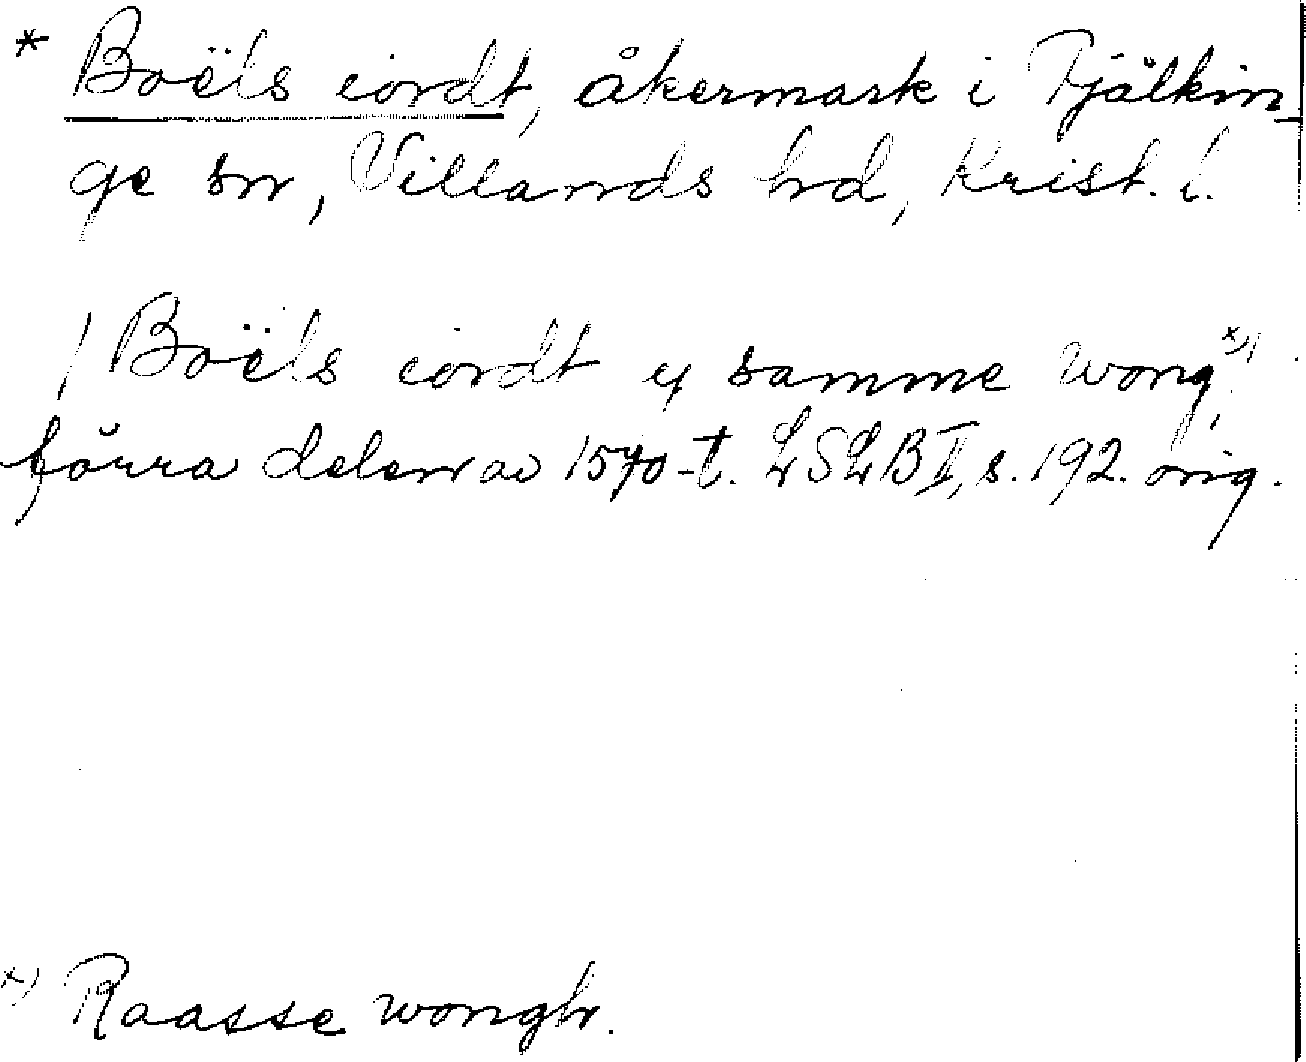 * Boëls iordt, åkermark i Fjälkin-
ge sn, Villands hd, Krist. l.
/ Boëls iordt y samme wong x),
förra delen av 1570-t. LSLB II, s. 192. orig.
x) Raasse wongh.